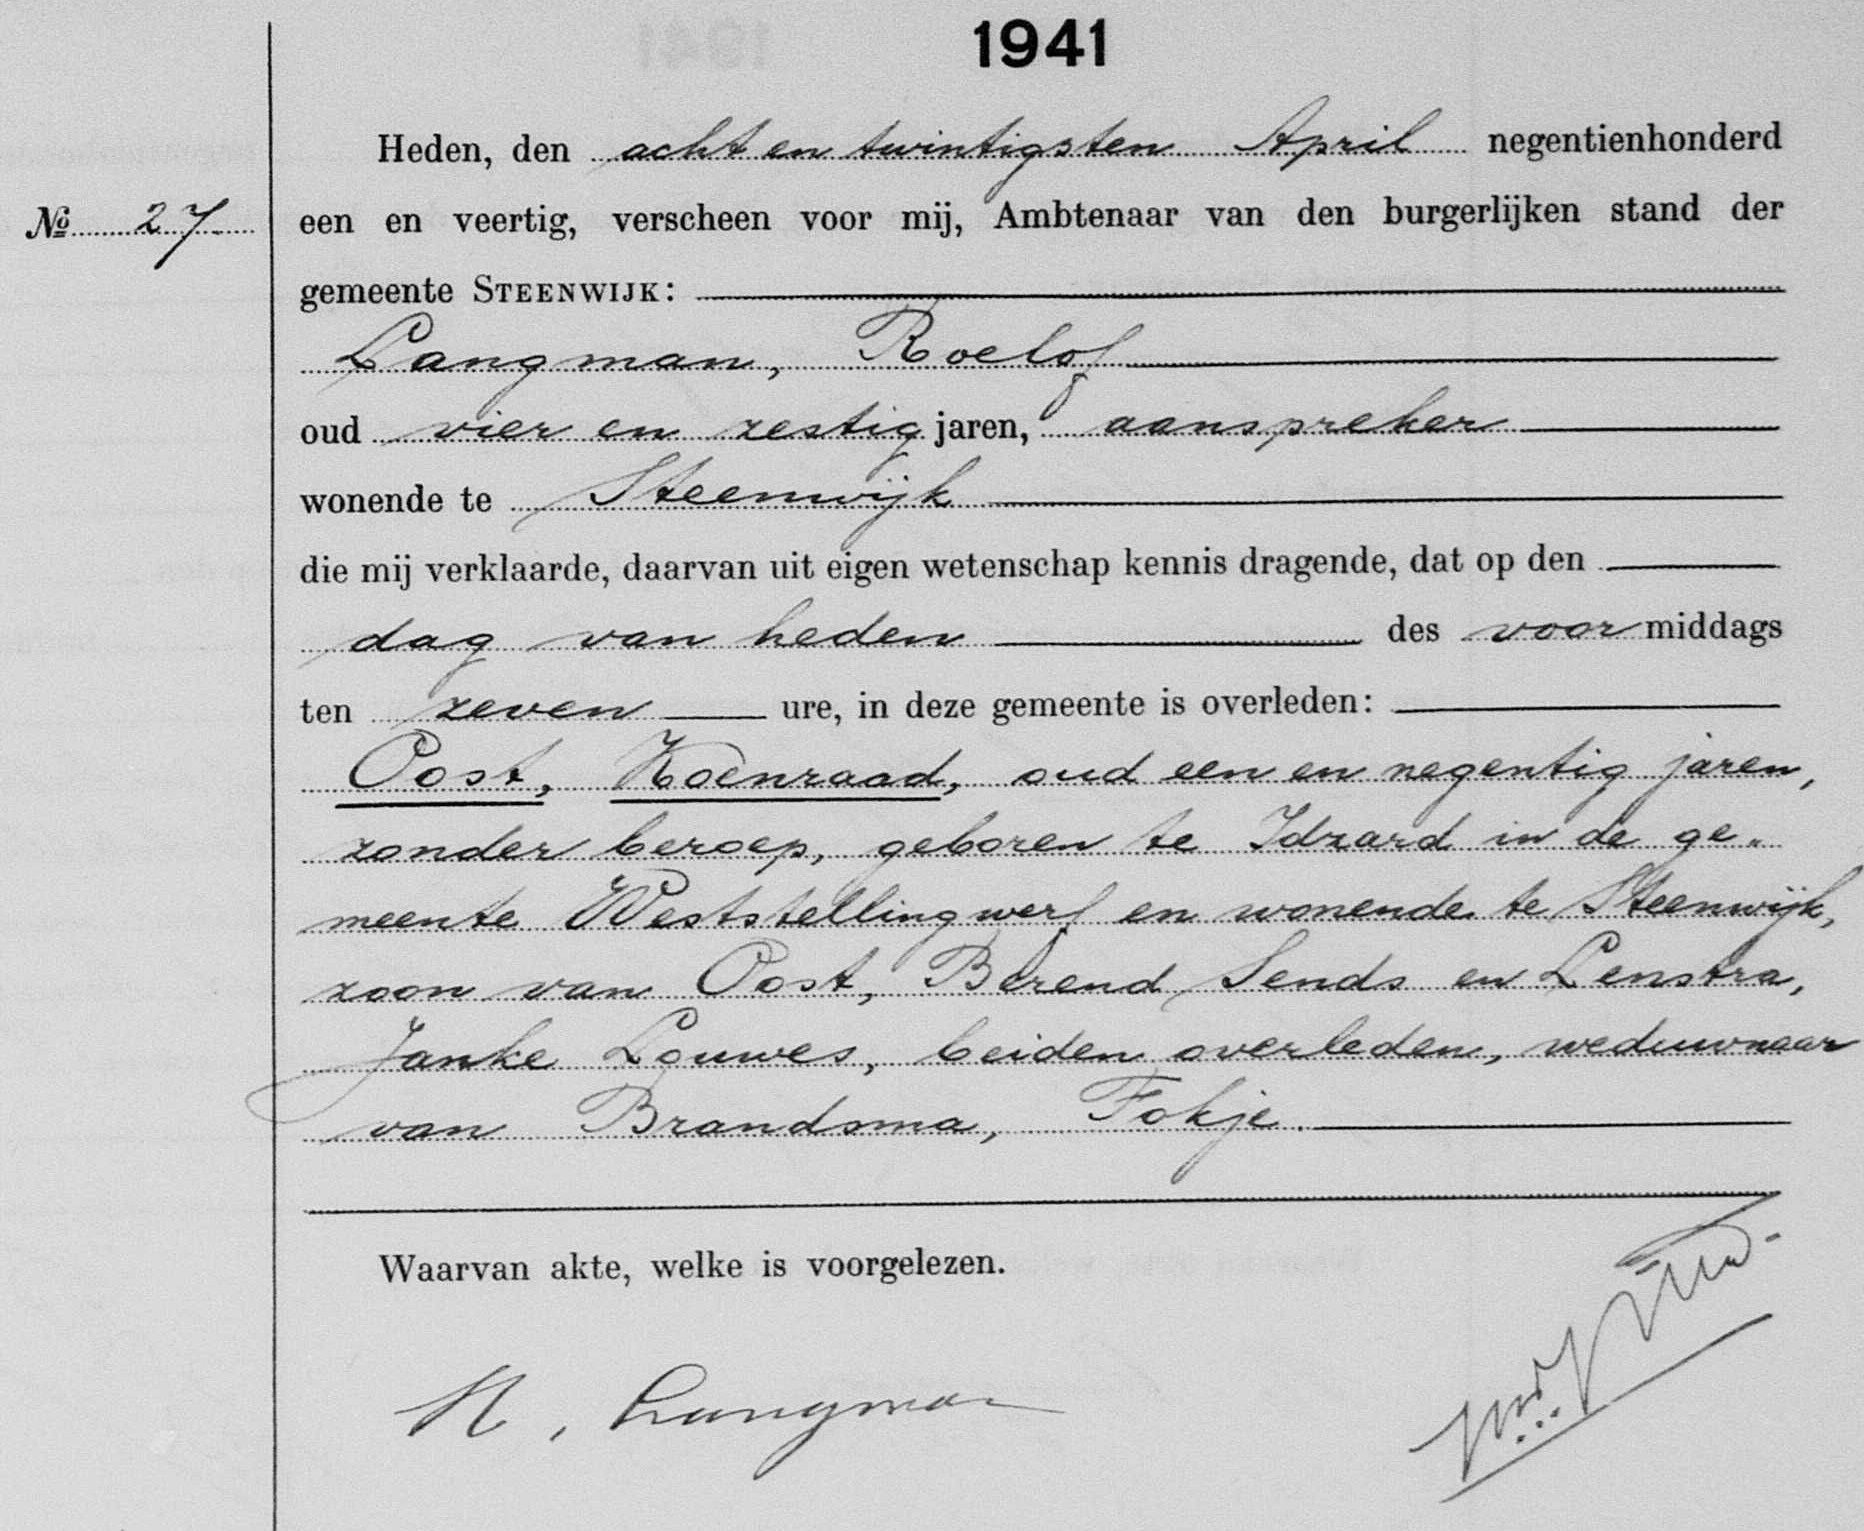 1941
Heden, den acht en twintigsten April negentienhonderd
№ 27
een en veertig, verscheen voor mij, Ambtenaar van den burgerlijken stand der
gemeente STEENWIJK:
Langman, Roelof
oud vier en zestig jaren, aanspreker
wonende te Steenwijk
die mij verklaarde, daarvan uit eigen wetenschap kennis dragende, dat op den
dag van heden des voormiddags
ten zeven ure, in deze gemeente is overleden:
Oost, Koenraad, oud een en negentig jaren,
zonder beroep, geboren te Idzard in de ge-
meente Weststellingwerf en wonende te Steenwijk,
zoon van Oost, Berend Sends en Lenstra,
Janke Louwes, beiden overleden, weduwnaar
van Brandsma, Fokje.
Waarvan akte, welke is voorgelezen.
Langman